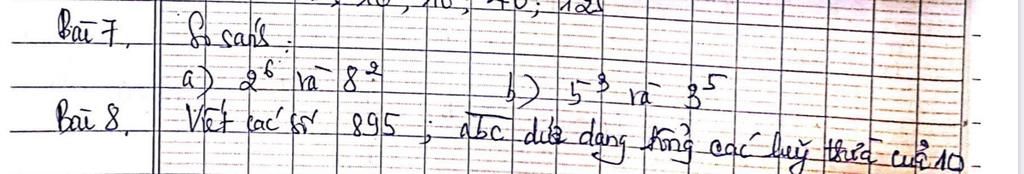 , 10, 10, 40; 125
Bài 7. So sánh:
a) 2⁶ và 8² b) 5³ và 3⁵
Bài 8. Viết các số 895 ; a̅b̅c̅ dưới dạng tổng các luỹ thừa của 10